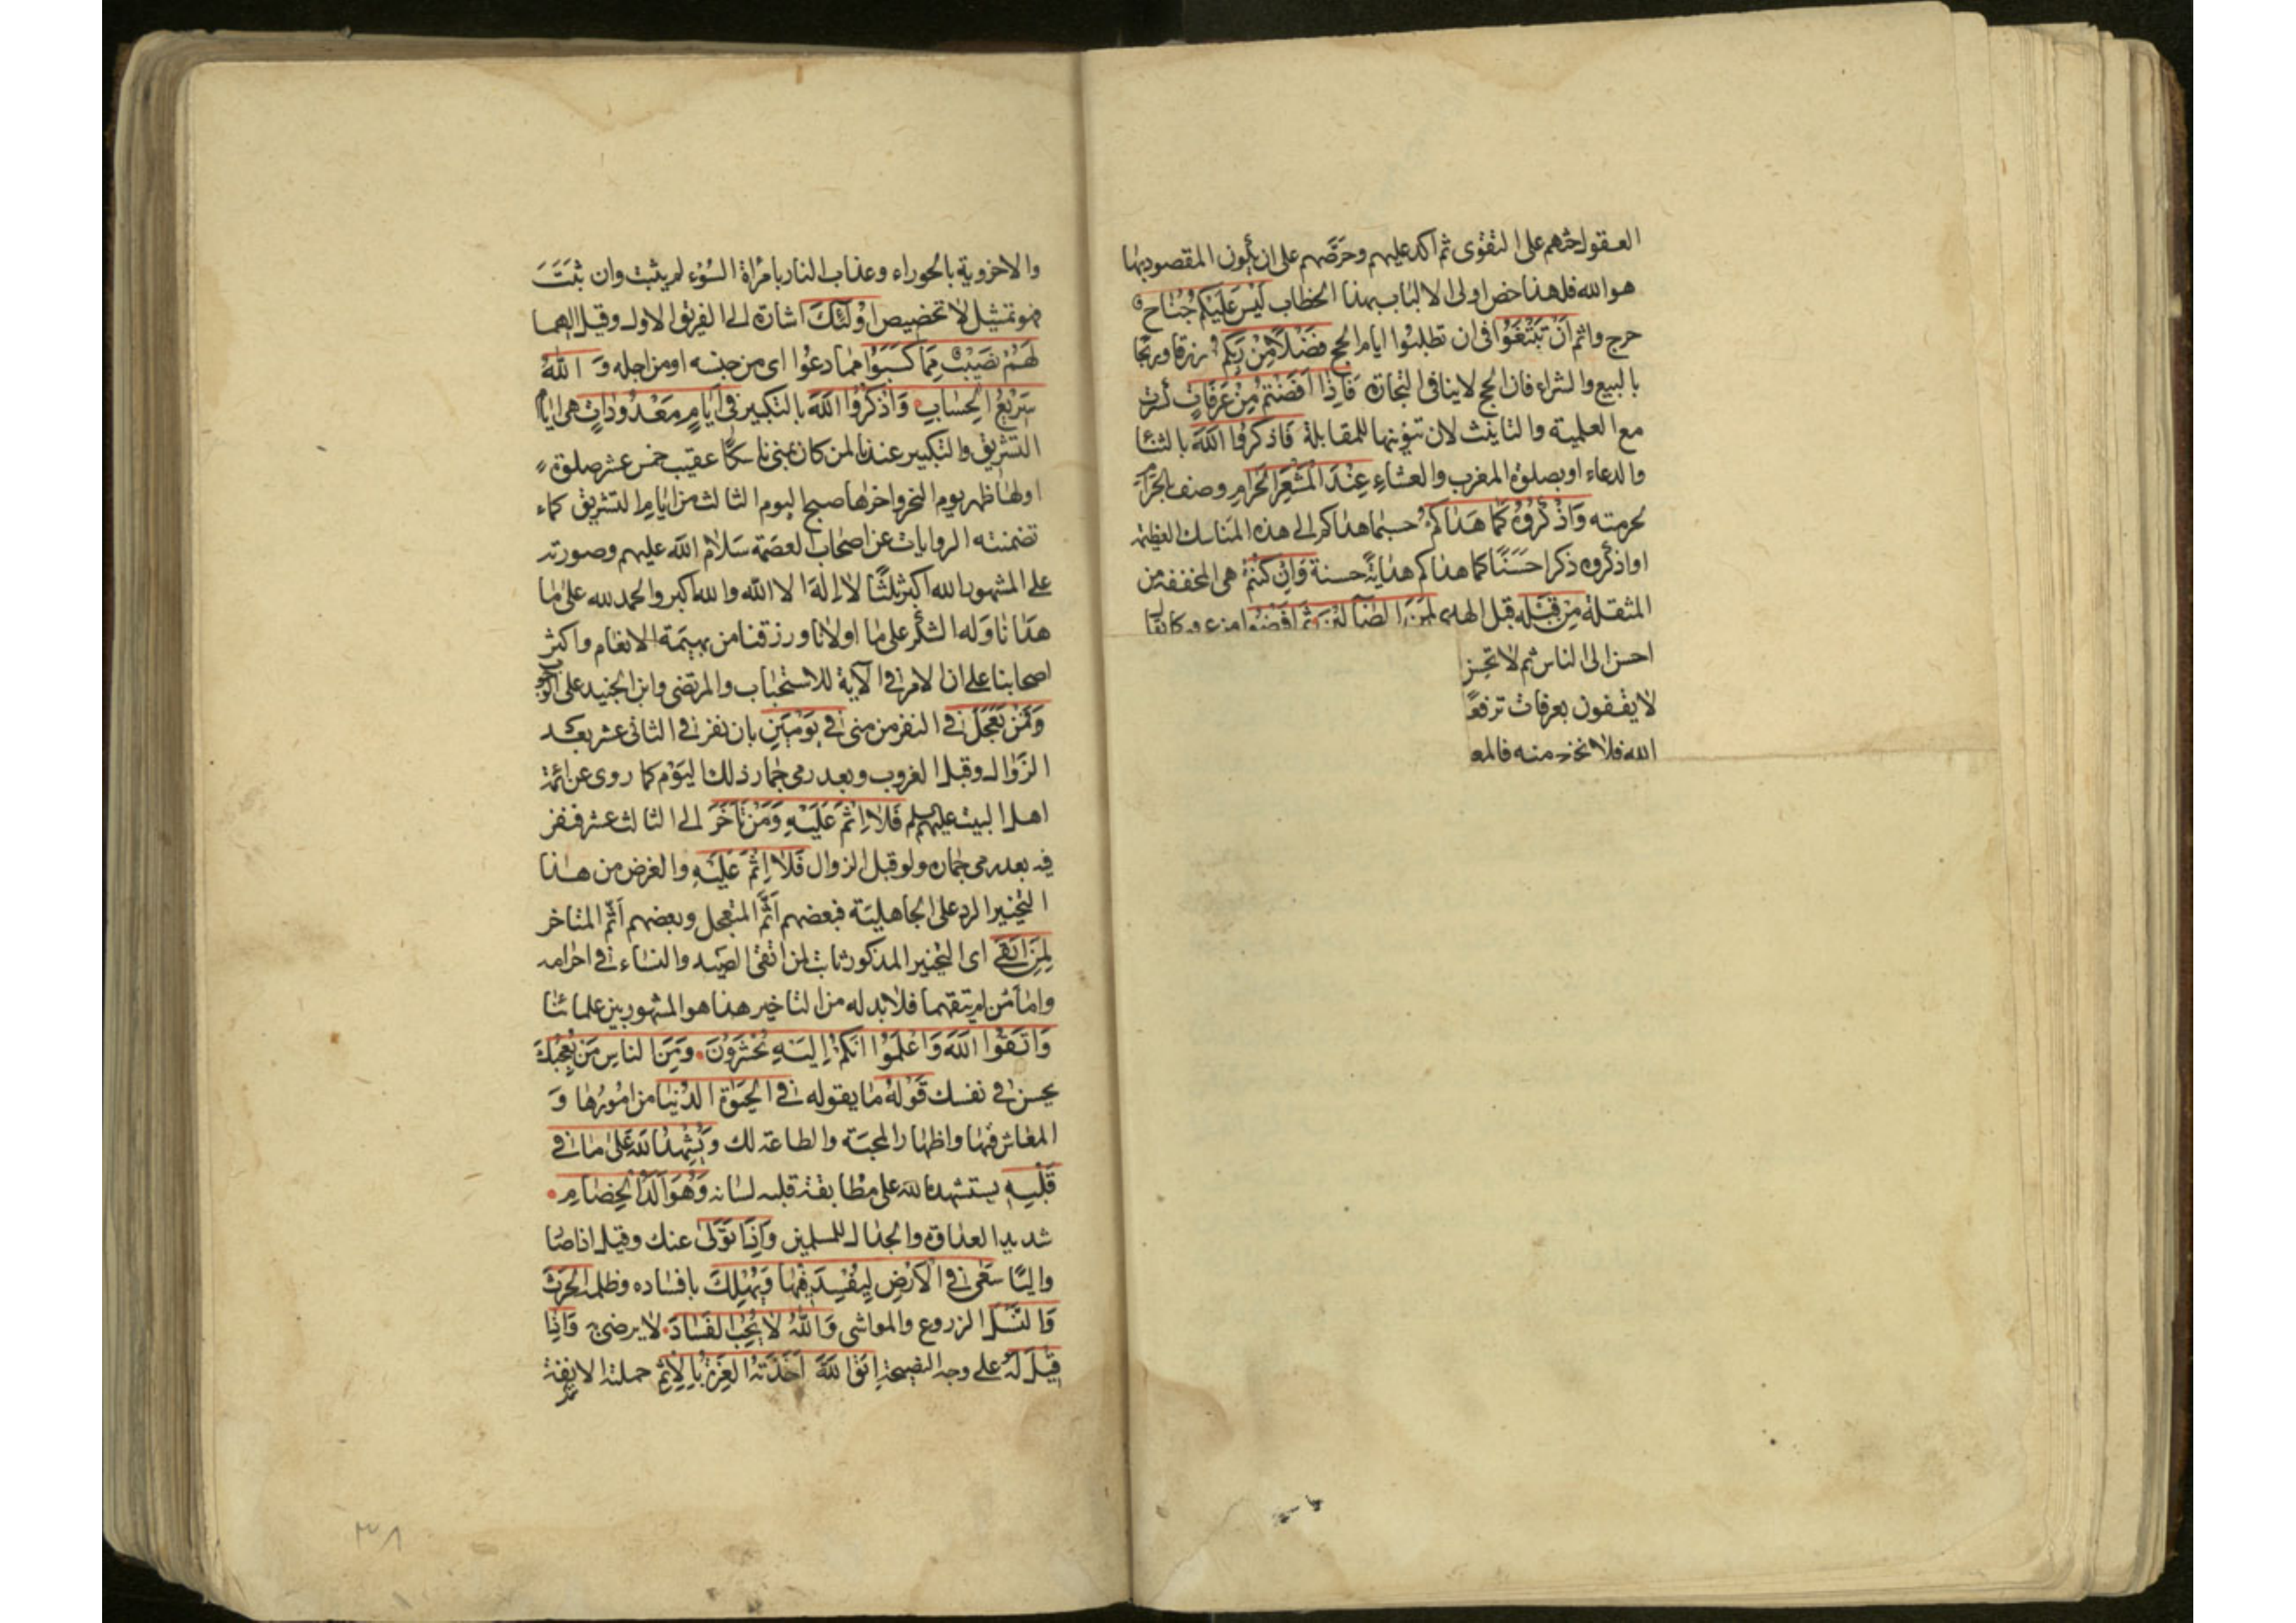 العقول حثهم على التقوى ثم اكد عليهم وحرضهم على ان يكون المقصود بها
هو الله فلهذا خص اولى الالباب بهذا الخطاب لَيْسَ عَلَيْكُمْ جُنَاحٌ
حرج واثم اَنْ تَبْتَغُوا فى ان تطلبوا ايام الحج فَضْلًا مِنْ رَبِّكُمْ رزقا وربحا
بالبيع والشراء فان الحج لا ينافى التجارة فَاِذَا اَفَضْتُمْ مِنْ عَرَفَاتٍ
مع العلمية والتانيث لان تنوينها للمقابلة فَاذْكُرُوا اللّٰهَ بالثناء
والدعاء او بصلوة المغرب والعشاء عِنْدَ الْمَشْعَرِ الْحَرَامِ وصف بالحرام
لحرمته وَاذْكُرُوهُ كَمَا هَدٰاكُمْ حسبما هداكم الى هذه المناسك العظيمة
او اذكروه ذكرا حَسَنًا كما هداكم هداية حسنة وَاِنْ كُنْتُمْ هى المخففة من
المثقلة مِنْ قَبْلِهِ قبل الهدى لَمِنَ الضَّالِّينَ ثُمَّ اَفِيضُوا
احسن الى الناس ثم لا تحسن
لا يقفون بعرفات ترفعًا
الله فلا نخرج منه فالمعـ
والاخروية بالحوراء وعذاب النار بامراة السُّوْء لم يثبت وان ثَبَتَ
فهو تمثيل لا تخصيص اُولٰئِكَ اشارة الى الفريق الاول وقيل اليهما
لَهُمْ نَصِيبٌ مِمَّا كَسَبُوا مما دعوا اى من جنسه او من اجله وَ اللّٰهُ
سَرِيعُ الْحِسَابِ وَاذْكُرُوا اللّٰهَ بالتكبير فِى اَيَّامٍ مَعْدُودَاتٍ هى ايام
التشريق والتكبير عندنا لمن كان بمنى ناسكًا عقيب خمس عشر صلوة
اولها ظهر يوم النحر واخرها صبح اليوم الثالث من ايام التشريق كما
تضمنته الروايات عن اصحاب العصمة سَلَام الله عليهم وصورته
على المشهور الله اكبر ثلثًا لا اله الا الله والله اكبر والحمد لله على ما
هدانا وله الشكر على ما اولانا ورزقنا من بهيمة الانعام واكثر
اصحابنا على ان الامر فى الآية للاستحباب والمرتضى وابن الجنيد على الوجوب
وَفَمَنْ تَعَجَّلَ فى النفر من منى فِى يَوْمَيْنِ بان نفر فى الثانى عشر بعد
الزوال وقبل الغروب وبعد رمى جمار ذلك اليَوْم كما روى عن ائمة
اهل البيت عليهم السلم فَلَا اِثْمَ عَلَيْهِ وَمَنْ تَاَخَّرَ الى الثالث عشر فنفر
فيه بعد رمى جماره ولو قبل الزوال فَلَا اِثْمَ عَلَيْهِ والغرض من هذا
التخيير الرد على الجاهلية فبعضهم اَثَّمَ المتعجل وبعضهم اَثَّمَ المتاخر
لِمَنِ اتَّقٰى اى التخيير المذكور ثابت لمن اتقى الصيد والنساء فى احرامه
واما من لم يتقهما فلا بد له من التاخير هذا هو المشهور بين علمائنا
وَاتَّقُوا اللّٰهَ وَاعْلَمُوا اَنَّكُمْ اِلَيْهِ تُحْشَرُونَ وَمِنَ النَّاسِ مَنْ يُعْجِبُكَ
يحسن فى نفسك قَوْلُهُ ما يقوله فِى الْحَيٰوةِ الدُّنْيَا من امُورها وَ
المعاش فيها واظهار المحبة والطاعة لك وَيُشْهِدُ اللّٰهَ عَلٰى مَا فِى
قَلْبِهِ يستشهد الله على مطابقة قلبه لسانه وَهُوَ اَلَدُّ الْخِصَامِ
شديد العداوة والجدال للمسلمين وَاِذَا تَوَلّٰى عنك وقيل اذا صا
واليًا سَعٰى فِى الْاَرْضِ لِيُفْسِدَ فِيهَا وَيُهْلِكَ بافساده وظلمه الْحَرْثَ
وَالنَّسْلَ الزروع والمواشى وَاللّٰهُ لَا يُحِبُّ الْفَسَادَ لا يرضى وَاِذَا
قِيلَ لَهُ على وجه النصيحة اتَّقِ اللّٰهَ اَخَذَتْهُ الْعِزَّةُ بِالْاِثْمِ حملته الانفة
٣٨